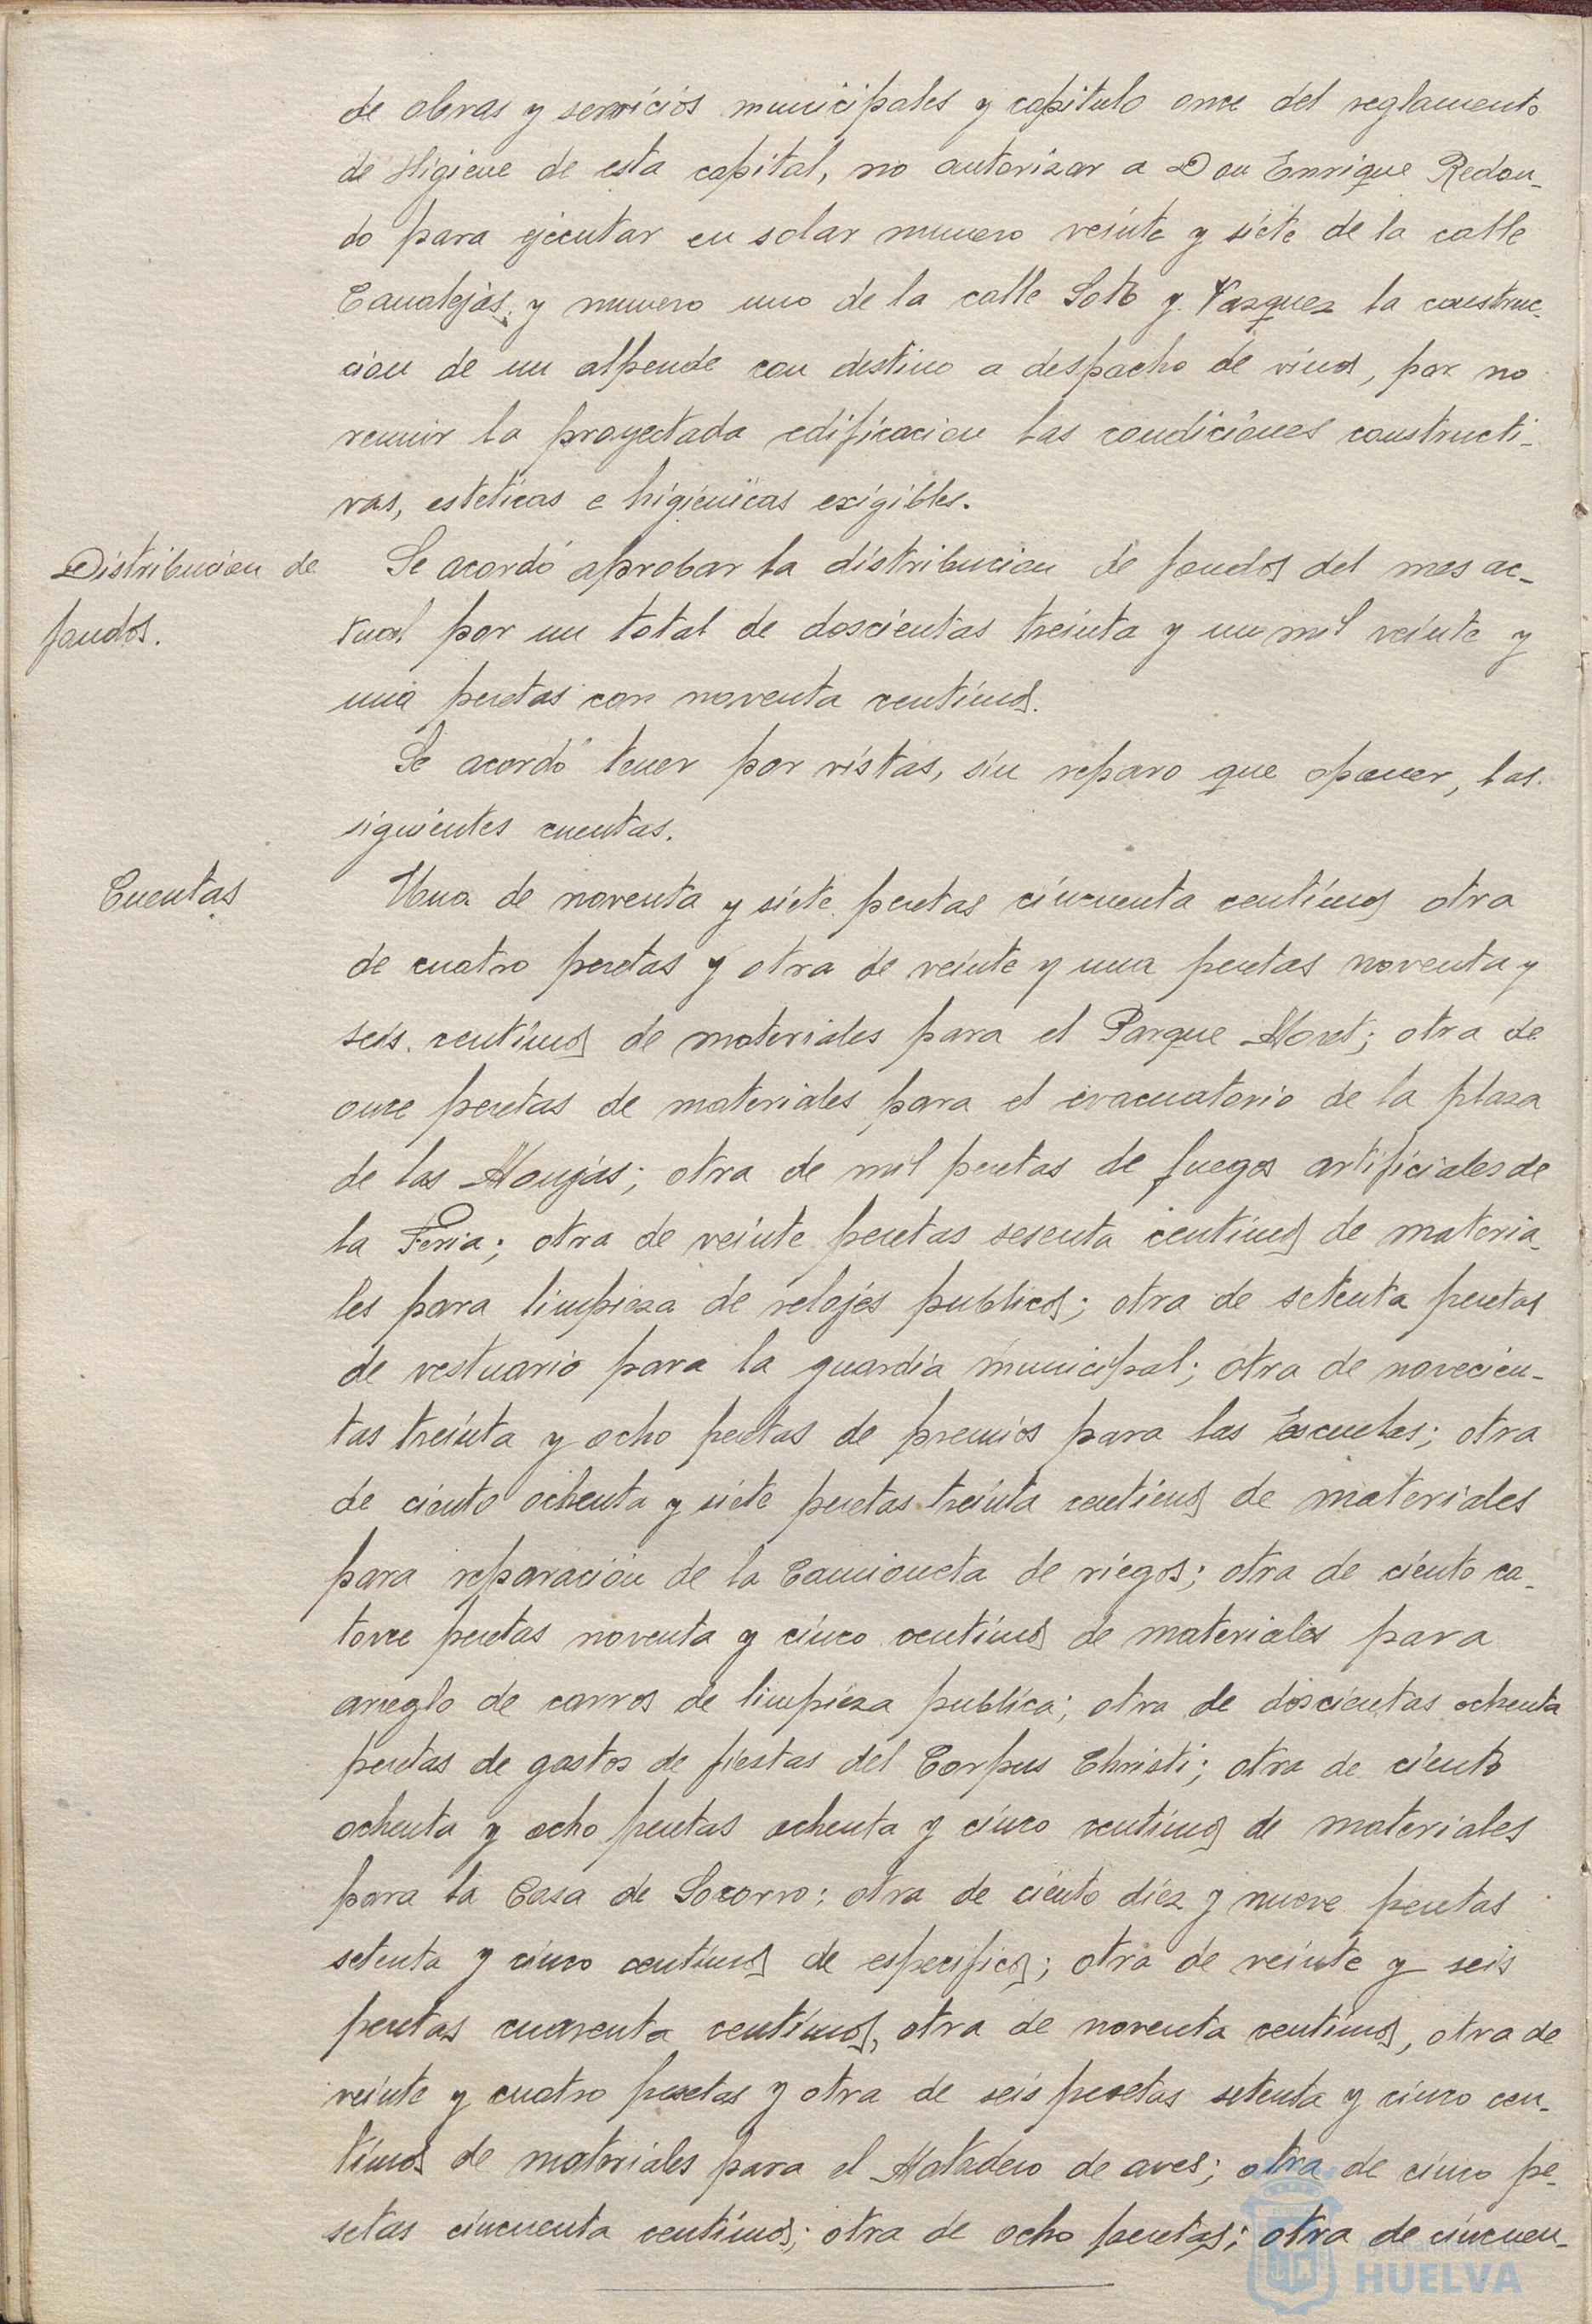 de obras y servicios municipales y capitulo once del reglamento
de Higiene de esta capital, no autorizar a Don Enrique Redon-
do para ejecutar en solar numero veinte y siete de la calle
Canalejas y numero uno de la calle Soto y Vazquez la construc-
cion de un alpende con destino a despacho de vinos, por no
reunir la proyectada edificacion las condiciones constructi-
vas, esteticas e higiénicas exigibles.
Distribucion de
fondos.
Se acordó aprobar la distribucion de fondos del mes ac-
tual por un total de doscientas treinta y un mil veinte y
una pesetas con noventa centimos.
Se acordó tener por vistas, sin reparo que oponer, las
siguientes cuentas.
Cuentas
Una de noventa y siete pesetas cincuenta centimos otra
de cuatro pesetas y otra de veinte y una pesetas noventa y
seis centimos de materiales para el Parque Moret; otra de
once pesetas de materiales para el evacuatorio de la plaza
de las Monjas; otra de mil pesetas de fuegos artificiales de
la Feria; otra de veinte pesetas sesenta centimos de materia-
les para limpieza de relojes publicos; otra de setenta pesetas
de vestuario para la guardia municipal; otra de novecien-
tas treinta y ocho pesetas de premios para las Escuelas; otra
de ciento ochenta y siete pesetas treinta centimos de materiales
para reparación de la Camioneta de riegos; otra de ciento ca-
torce pesetas noventa y cinco centimos de materiales para
arreglo de carros de limpieza publica; otra de doscientas ochenta
pesetas de gastos de fiestas del Corpus Christi; otra de ciento
ochenta y ocho pesetas ochenta y cinco centimos de materiales
para la Casa de Socorro; otra de ciento diez y nueve pesetas
setenta y cinco centimos de especificos; otra de veinte y seis
pesetas cuarenta centimos, otra de noventa centimos, otra de
veinte y cuatro pesetas y otra de seis pesetas setenta y cinco cen-
timos de materiales para el Matadero de aves; otra de cinco pe-
setas cincuenta centimos; otra de ocho pesetas; otra de cincuen-
Ayuntamiento de
HUELVA